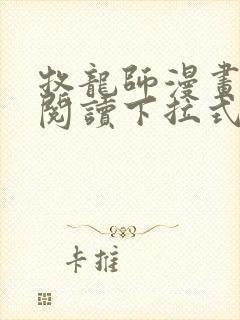 牧龍師漫畫
閱讀下拉式
卡推